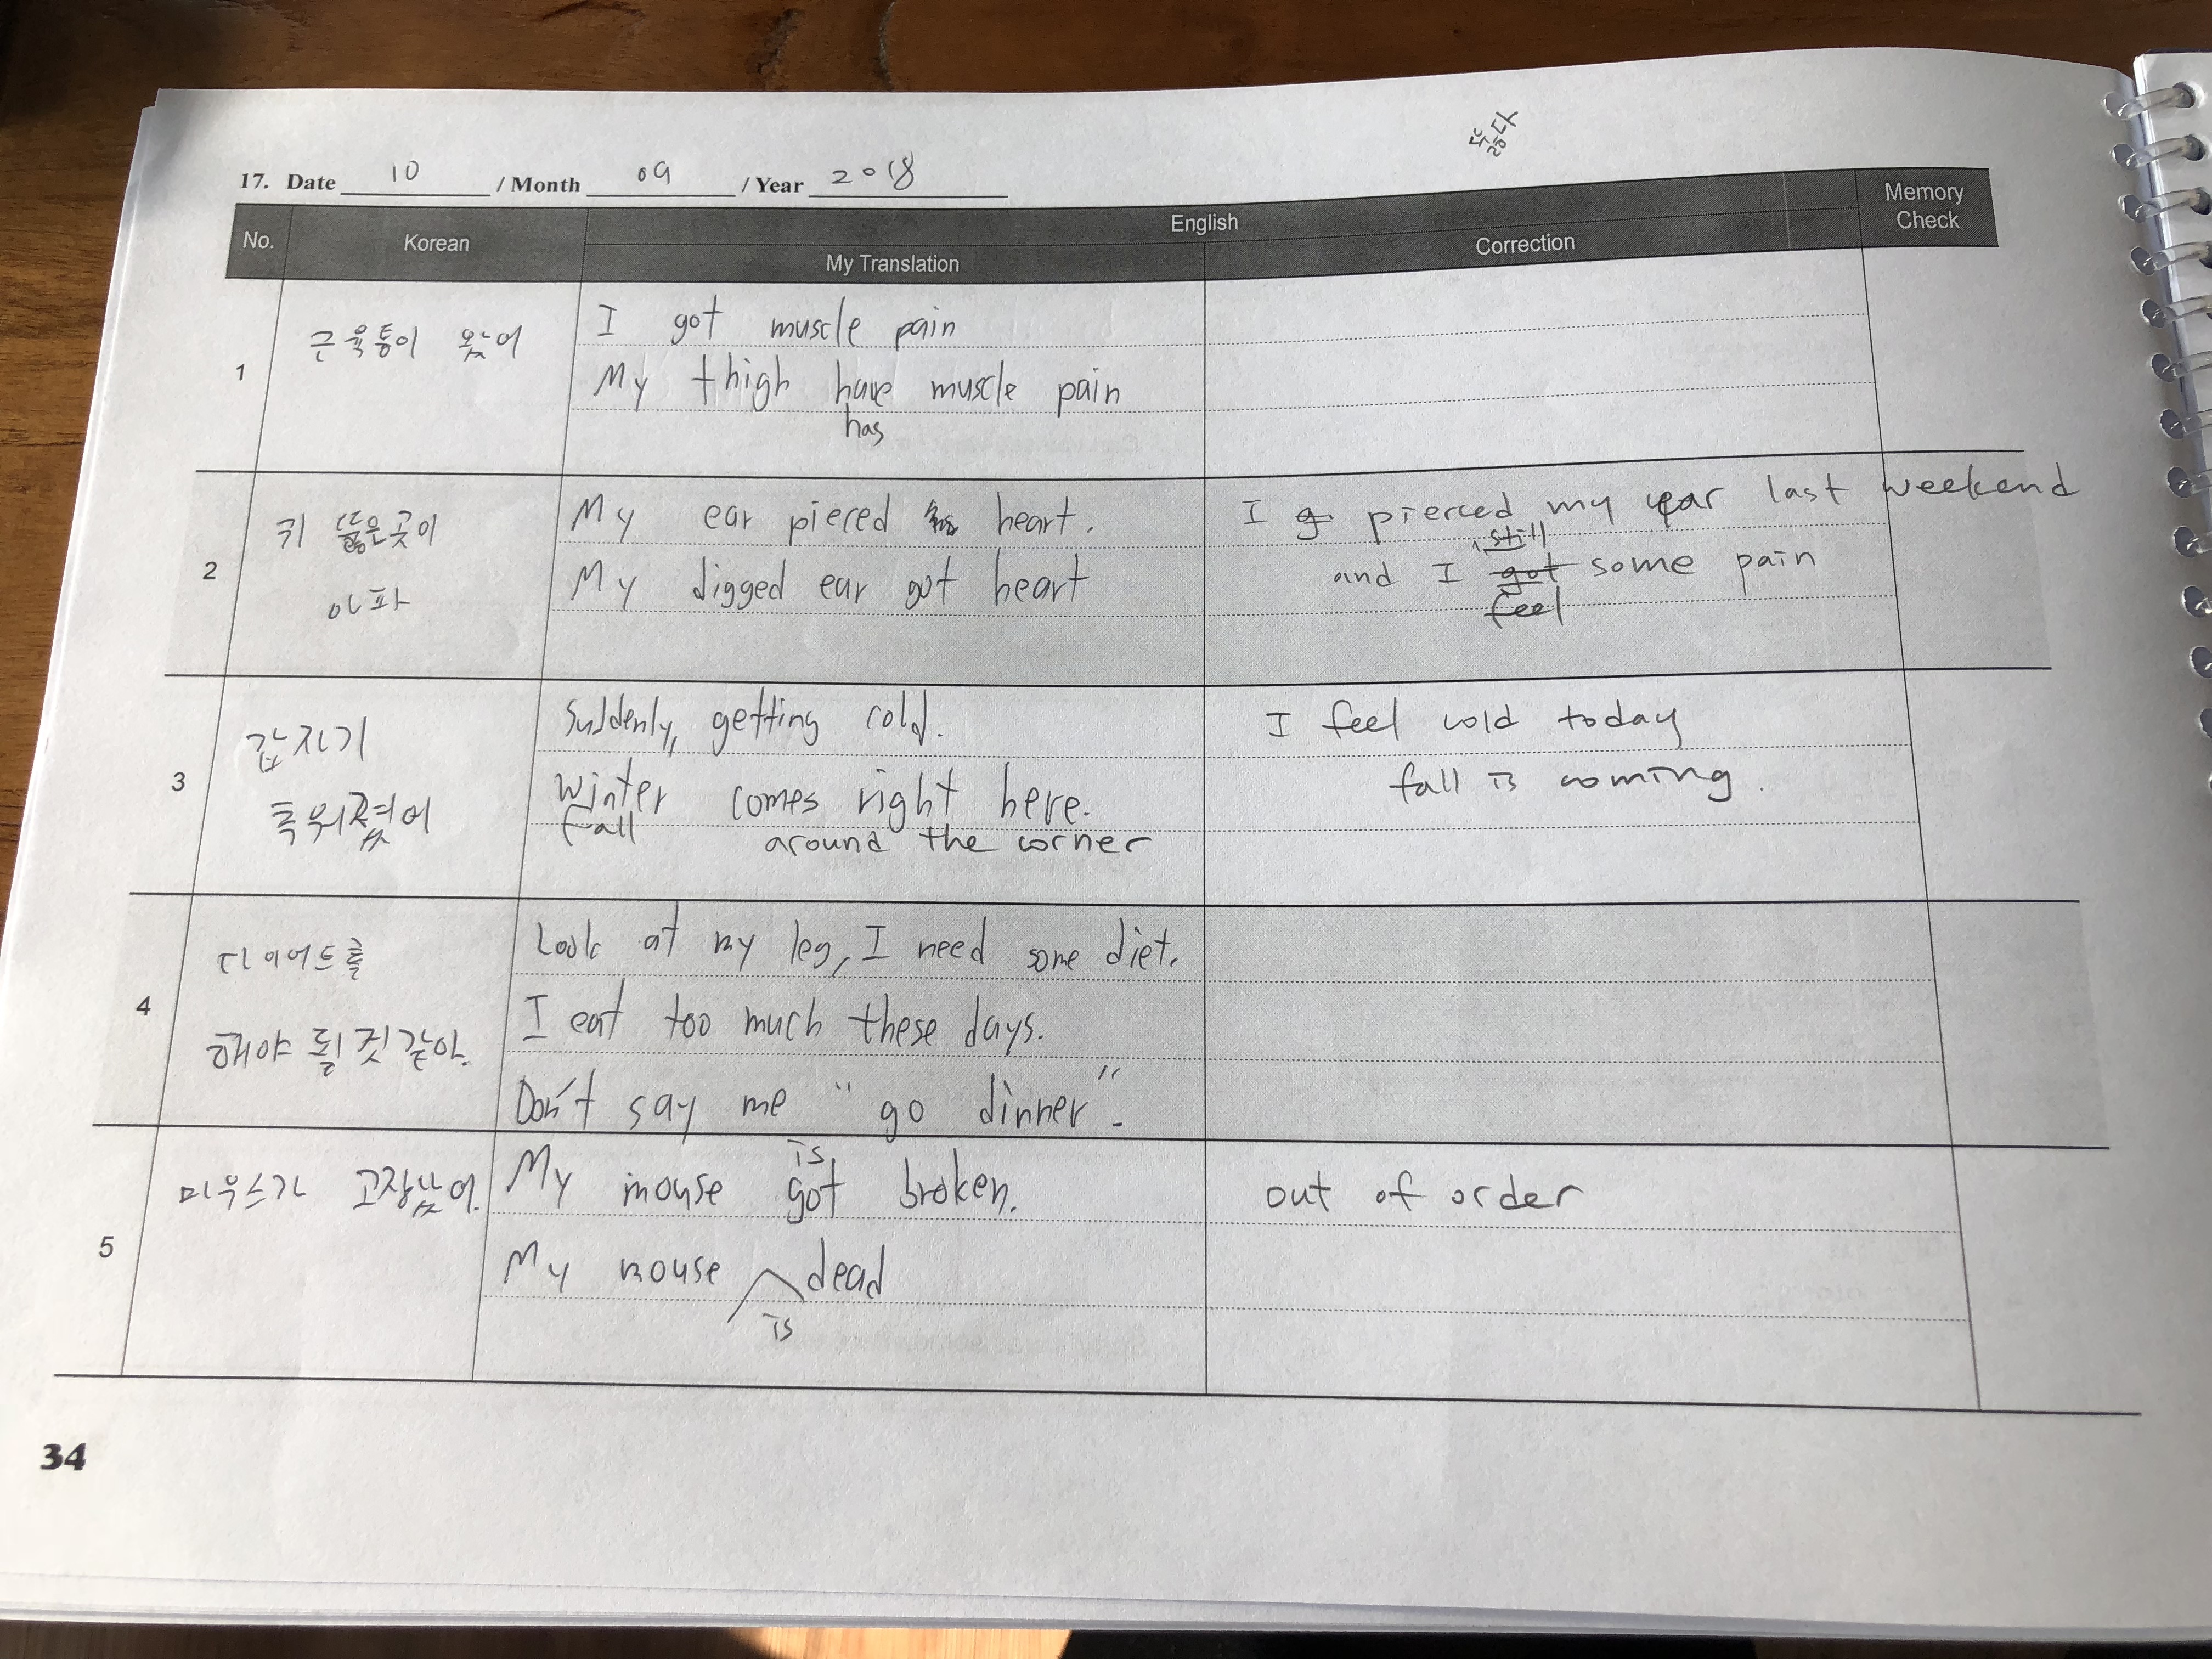 뚫다
17. Date 10 / Month 09 / Year 2018
No. Korean English Memory Check
My Translation Correction
1 근육통이 왔어
I got muscle pain
My thigh have muscle pain
has
2 귀 뚫은곳이
아파
My ear pieced heart.
My digged ear got heart
I pierced my ear last weekend
still
and I got some pain
feel
3 갑자기
추워졌어
Suddenly, getting cold.
Winter comes right here.
fall around the corner
I feel cold today
fall is coming.
4 다이어트를
해야 될 것 같아.
Look at my leg, I need some diet.
I eat too much these days.
Don't say me "go dinner".
5 마우스가 고장났어.
is
My mouse got broken.
My mouse dead
is
out of order
34